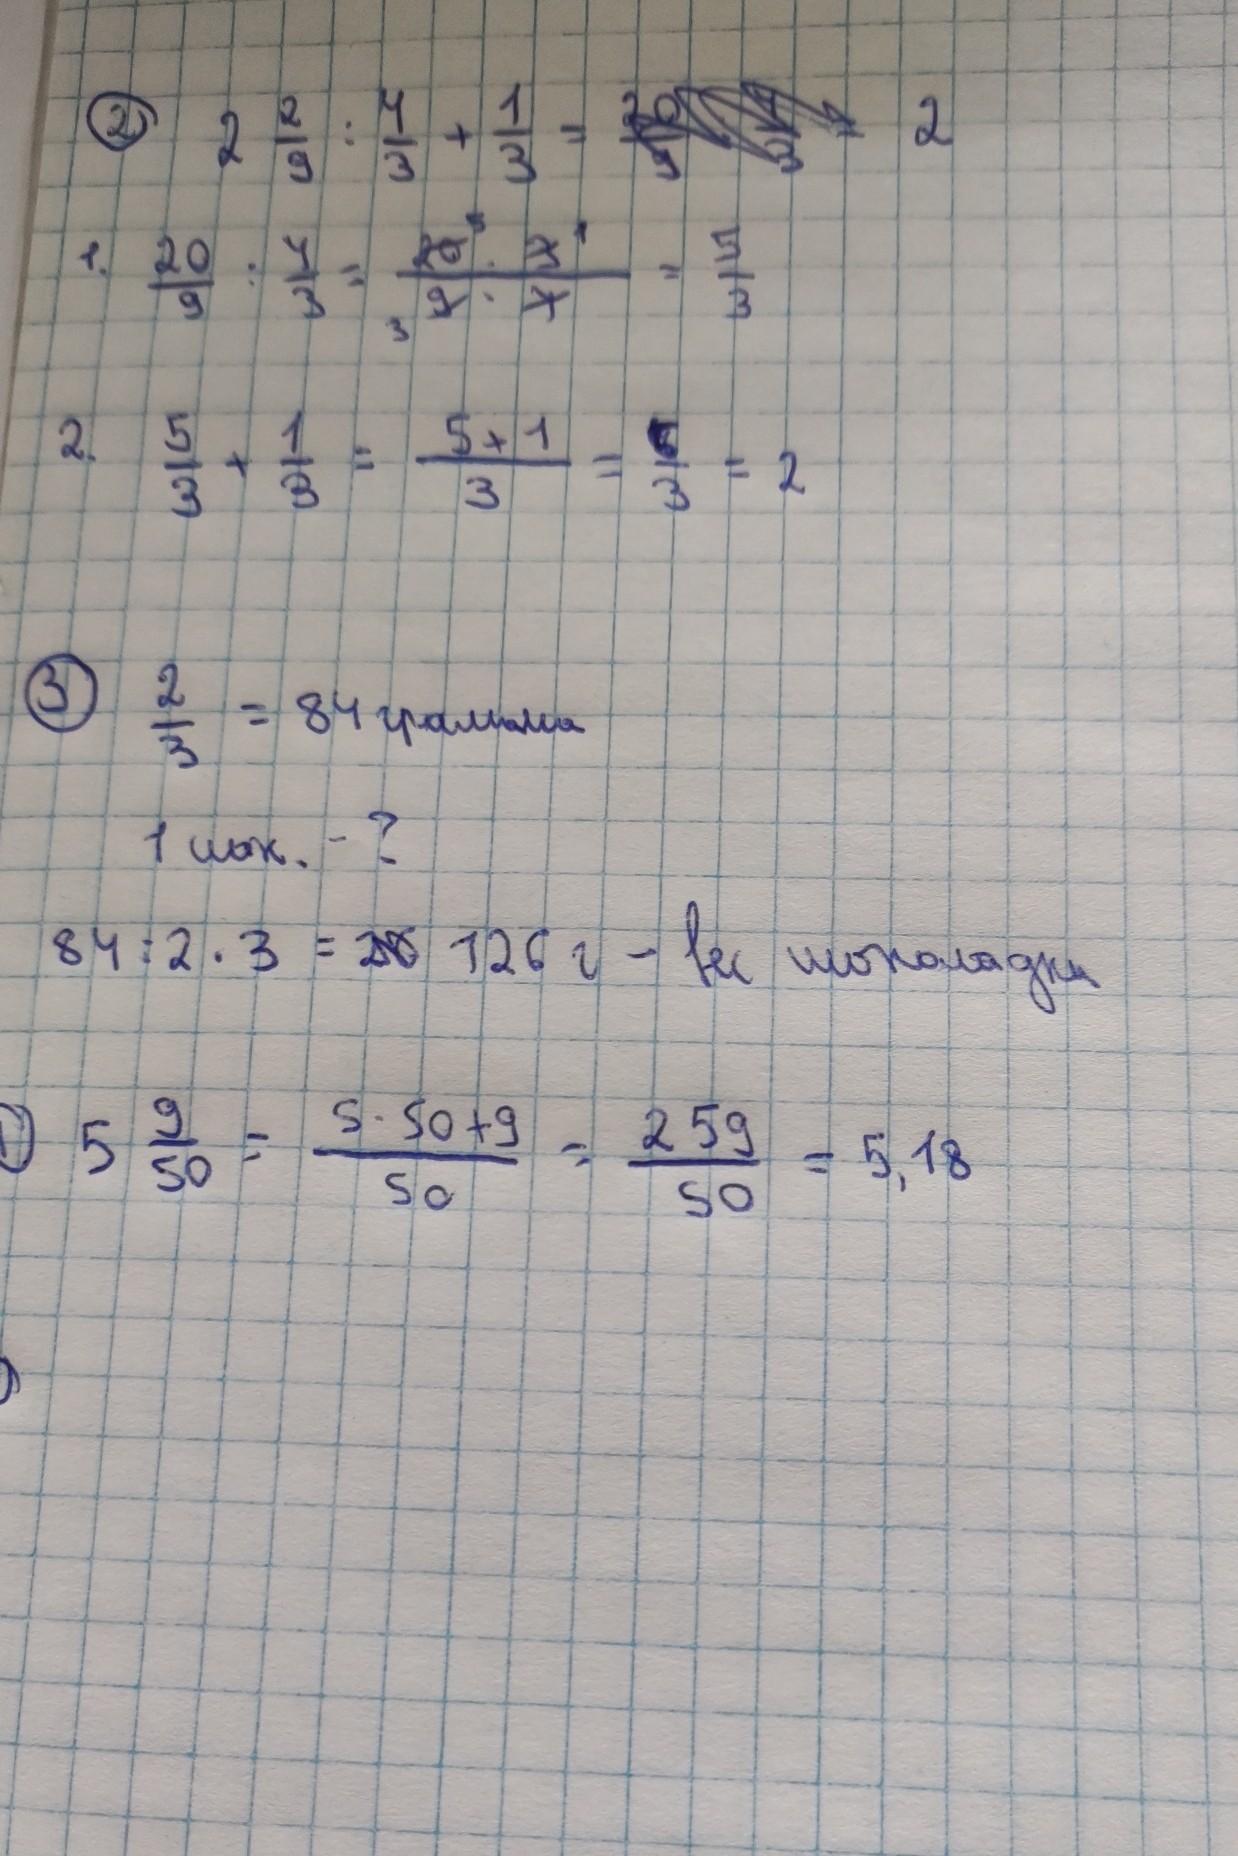 ② 2 2/9 : 4/3 + 1/3 = 2
1. 20/9 : 4/3 = 20⁵ · 3¹ / 3 9 · 4 = 5/3
2. 5/3 + 1/3 = 5+1/3 = 6/3 = 2
③ 2/3 = 84 грамма
1 шок. - ?
84 : 2 · 3 = 126 г - вес шоколадки
5 9/50 = 5·50+9/50 = 259/50 = 5,18